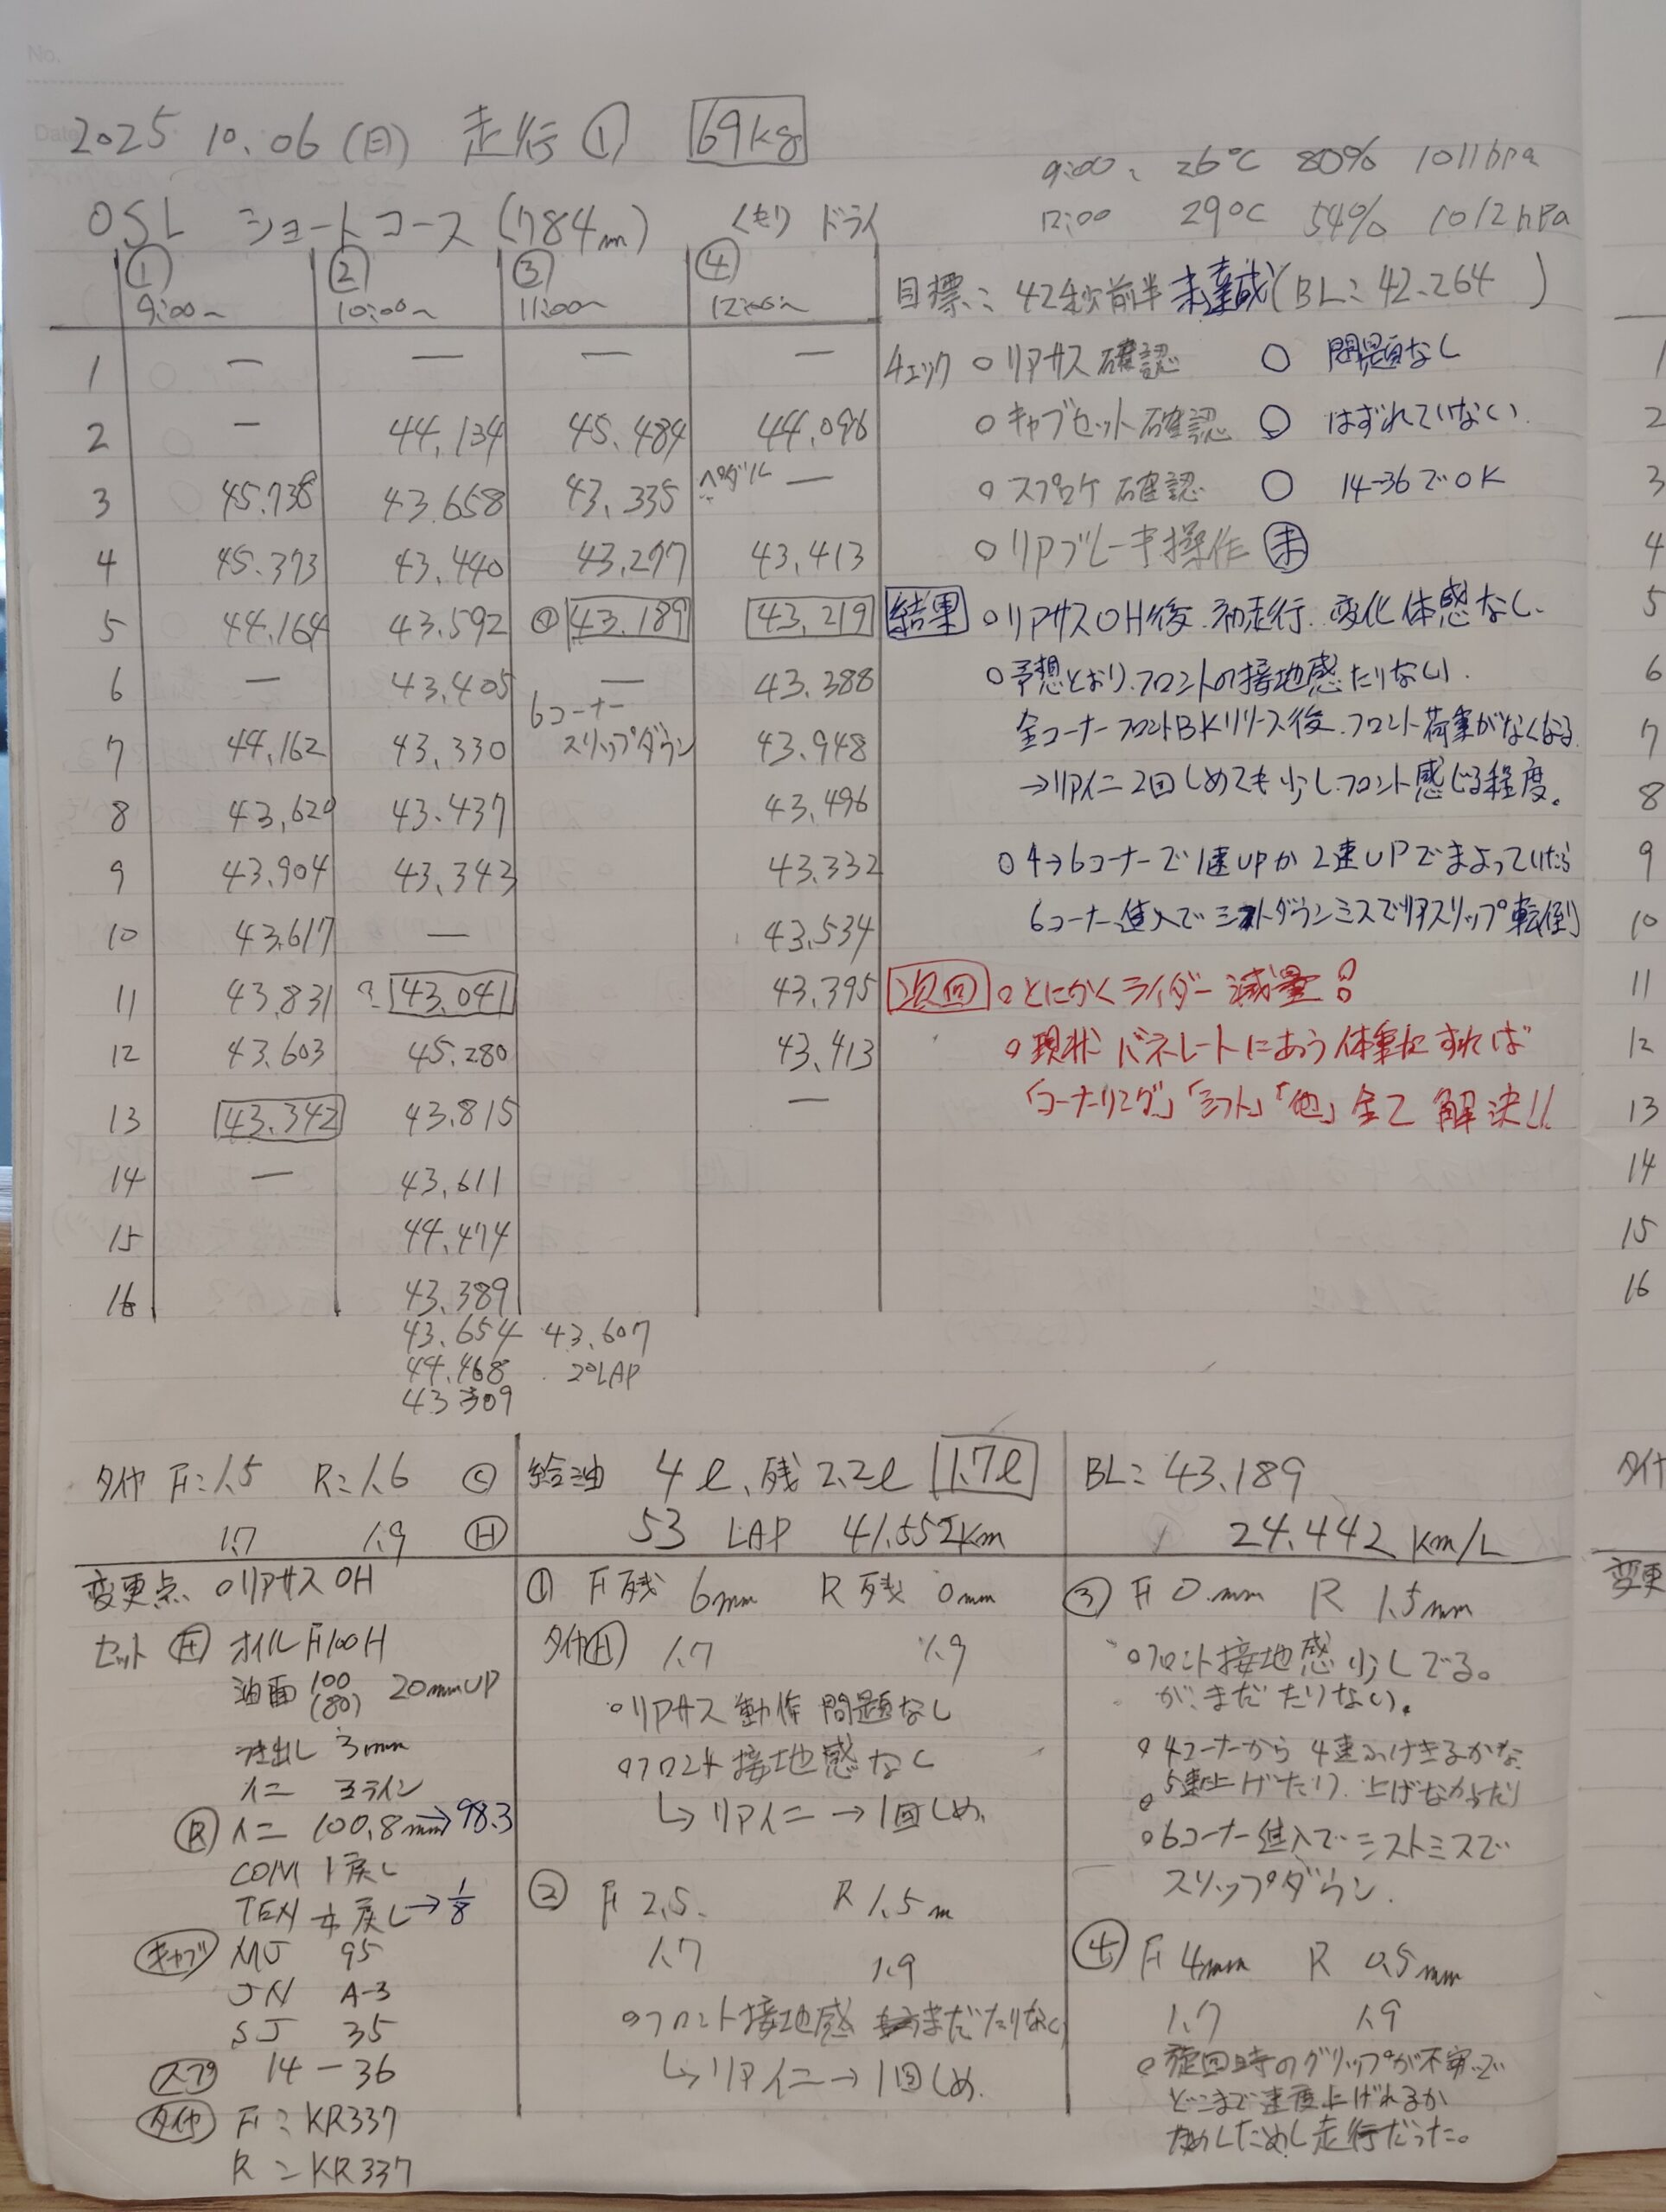 No.
Date
2025 10.06 (月) 走行① 69kg
9:00〜 26℃ 80% 1011hpa
12:00 29℃ 54% 1012hPa
OSL ショートコース (784m) くもり ドライ
① ② ③ ④
9:00〜 10:00〜 11:00〜 12:00〜
1 — — — —
2 — 44.134 45.484 44.096
3 45.738 43.658 43.335 ペダル —
4 45.373 43.440 43.297 43.413
5 44.164 43.592 43.189 43.219
6 — 43.405 — 43.388
6コーナー
スリップダウン
7 44.162 43.330 43.948
8 43.620 43.437 43.496
9 43.904 43.343 43.332
10 43.617 — 43.534
11 43.831 ? 43.041 43.395
12 43.603 45.280 43.413
13 43.342 43.815 —
14 — 43.611
15 44.474
16 43.389
43.654 43.607
44.468 20LAP
43.309
目標: 42秒前半 未達成 (BL: 42.264)
チェック ○リアサス確認 ○ 問題なし
○キャブセット確認 ○ はずれていない.
○スプロケ確認 ○ 14-36でOK
○リアブレーキ操作 未
結果 ○リアサスOH後.初走行.変化体感なし.
○予想とおり.フロントの接地感たりない.
全コーナーフロントBKリリース後.フロント荷重がなくなる.
→リアイニ2回しめても少しフロント感じる程度。
○4→6コーナーで1速UPか2速UPでまよっていたら
6コーナー進入でシフトダウンミスでリアスリップ転倒
次回 ○とにかくライダー減量!
○現状バネレートにあう体重にすれば
「コーナーリング」「シフト」「他」全て解決!!
タイヤ F:1.5 R:1.6 Ⓒ
1.7 1.9 Ⓗ
給油 4ℓ、残2.2ℓ 1.7ℓ
53 LAP 41.552km
BL: 43.189
24.442 km/L
変更点 ○リアサスOH
セット Ⓕ オイルF100H
油面 100 20mmUP
(80)
突出し 3mm
イニ 3ライン
Ⓡ イニ 100.8mm→98.3
COM 1戻し
TEN 戻し→1/8
キャブ MJ 95
JN A-3
SJ 35
スプ 14-36
タイヤ F:KR337
R:KR337
① F残 6mm R残 0mm
タイヤⒽ 1.7 1.9
○リアサス動作 問題なし
○フロント接地感なし
↳リアイニ→1回しめ.
② F 2.5. R 1.5m
1.7 1.9
○フロント接地感 まだたりない
↳リアイニ→1回しめ.
③ F 0mm R 1.5mm
○フロント接地感少しでる。
が、まだたりない。
○4コーナーから4速ふけきるかな
○5速上げたり.上げなかったり
○6コーナー進入でシフトミスで
スリップダウン.
④ F 4mm R 0.5mm
1.7 1.9
○旋回時のグリップが不安で
どこまで速度上げれるか
ためしためし走行だった。
1
2
3
4
5
6
7
8
9
10
11
12
13
14
15
16
タイヤ
変更